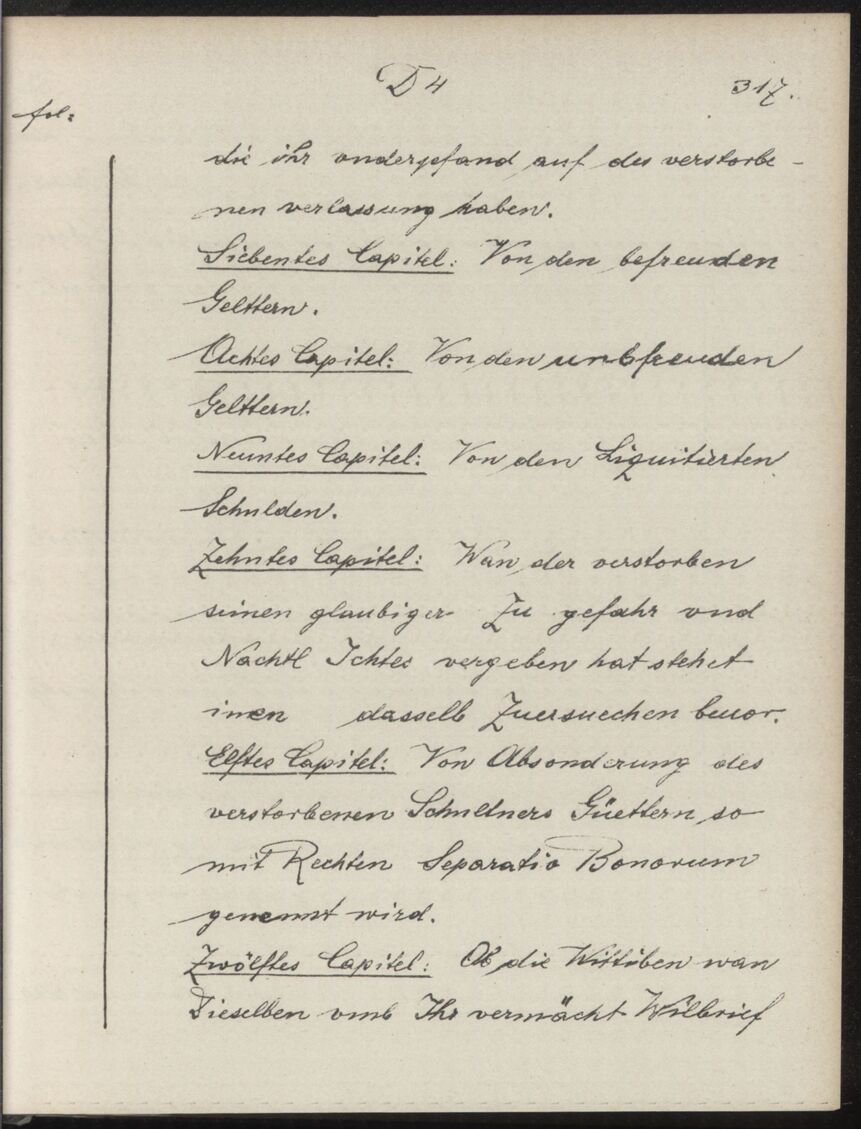 D 4 317.
fol:
die ihr vndergefand auf des verstorbe-
nen verlassung haben.
Siebentes Capitel: Von den befreuden
Gelttern.
Achtes Capitel: Von den unbfreuden
Gelttern.
Neuntes Capitel: Von den Liquitierten
Schulden.
Zehntes Capitel: Wan der verstorben
seinen glaubiger Zu gefahr vnd
Nachtl Ichtes vergeben hat stehet
inen dasselb Zuersuechen beuor.
Elftes Capitel: Von Absonderung des
verstorbenen Schultners Güettern so
mit Rechten Separatio Bonorum
genennt wird.
Zwölftes Capitel: Ob die Wittiben wan
Dieselben vmb Ihr vermächt Wilbrief